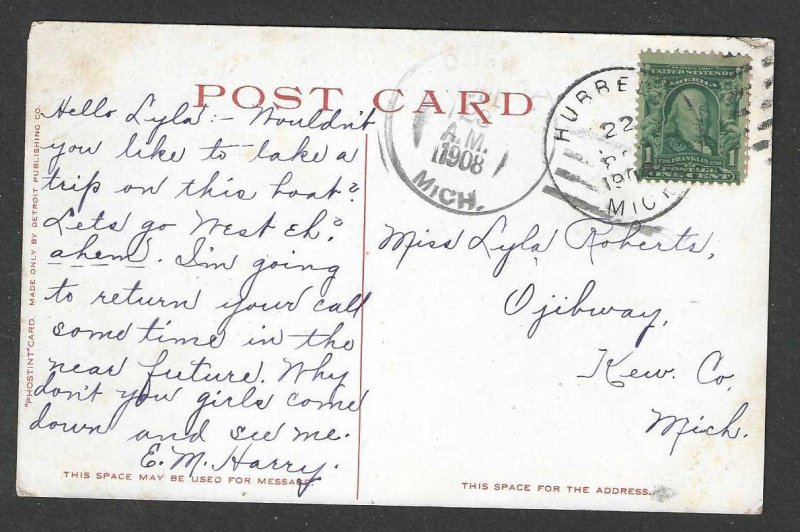 POST CARD
Hello Lyla:- Wouldn't
you like to take a
trip on this boat?
Lets go West Eh?
ahem. I'm going
to return your call
some time in the
near future. Why
don't you girls come
down and see me.
E. M. Harry.
THIS SPACE MAY BE USED FOR MESSAGE
"PHOSTINT" CARD. MADE ONLY BY DETROIT PUBLISHING CO.
A.M.
1908
MICH.
HURRE
22
MICH
UNITED STATES OF
AMERICA
FRANKLIN
POSTAGE
1 1
ONE CENT
Miss Lyla Roberts,
Ojibway,
Kew. Co.
Mich.
THIS SPACE FOR THE ADDRESS.